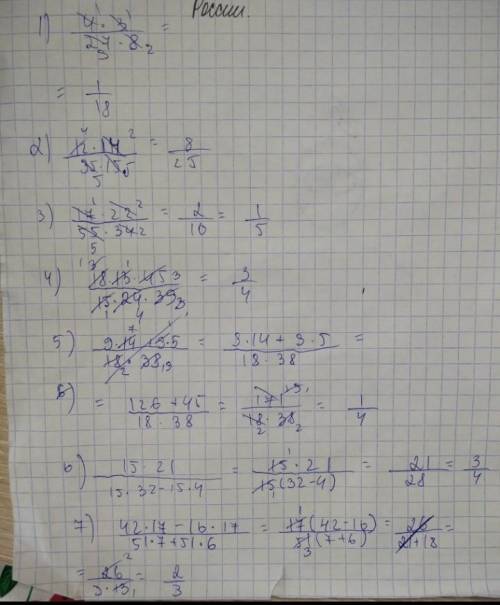 России.
1) 4·3 / 27·8 =
= 1/18
2) 12·14 / 35·15 = 8/25
3) 17·22 / 55·34 = 2/10 = 1/5
4) 18·13·45 / 15·24·39 = 3/4
5) 9·14+9·5 / 18·38 = 9·14+9·5 / 18·38 =
= 126+45 / 18·38 = 171 / 18·38 = 1/4
6) 15·21 / 15·32-15·4 = 15·21 / 15(32-4) = 21/28 = 3/4
7) 42·17-16·17 / 51·7+51·6 = 17(42-16) / 51(7+6) = 26 / 21+18 =
= 26 / 3·13 = 2/3